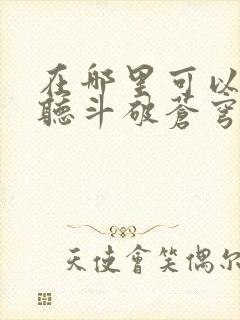 在哪里可以
聽斗破蒼穹
天使會笑偶尔